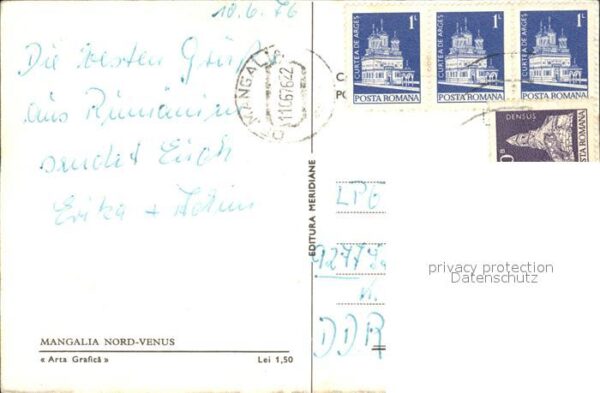 10.6.76
Die besten Grüße
aus Rumänien
sendet Euch
Erika +
MANGALIA
11.06.76.22
1L
CURTEA DE ARGEȘ
POSTA ROMANA
1L
CURTEA DE ARGEȘ
POSTA ROMANA
1L
CURTEA DE ARGEȘ
POSTA ROMANA
DENSUS
POSTA ROMANA
EDITURA MERIDIANE
LPG
DDR
privacy protection
Datenschutz
MANGALIA NORD-VENUS
« Arta Grafică »
Lei 1,50